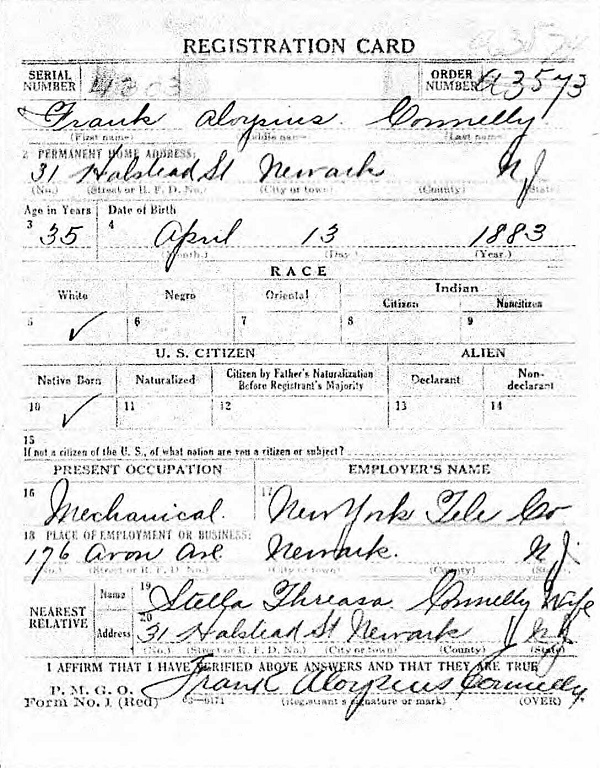 REGISTRATION CARD
SERIAL NUMBER ORDER NUMBER A3573
Frank Aloysius Connelly
(First name) (Middle name) (Last name)
2 PERMANENT HOME ADDRESS:
31 Halstead St Newark N J
(No.) (Street or R. F. D. No.) (City or town) (County) (State)
Age in Years Date of Birth
3 35 4 April 13 1883
(Month.) (Day.) (Year.)
RACE
White Negro Oriental Indian
Citizen Noncitizen
5 ✓ 6 7 8 9
U. S. CITIZEN ALIEN
Native Born Naturalized Citizen by Father's Naturalization Before Registrant's Majority Declarant Non-declarant
10 ✓ 11 12 13 14
15
If not a citizen of the U. S., of what nation are you a citizen or subject?
PRESENT OCCUPATION EMPLOYER'S NAME
16 Mechanical 17 New York Tele Co
18 PLACE OF EMPLOYMENT OR BUSINESS:
176 Avon Ave Newark N. J.
(No.) (Street or R. F. D. No.) (City or town) (County) (State)
NEAREST RELATIVE
Name 19 Stella Threasa Connelly Wife
Address 20 31 Halstead St Newark N J
(No.) (Street or R. F. D. No.) (City or town) (County) (State)
I AFFIRM THAT I HAVE VERIFIED ABOVE ANSWERS AND THAT THEY ARE TRUE
P. M. G. O.
Form No. 1 (Red) 03—6171 Frank Aloysius Connelly
(Registrant's signature or mark) (OVER)